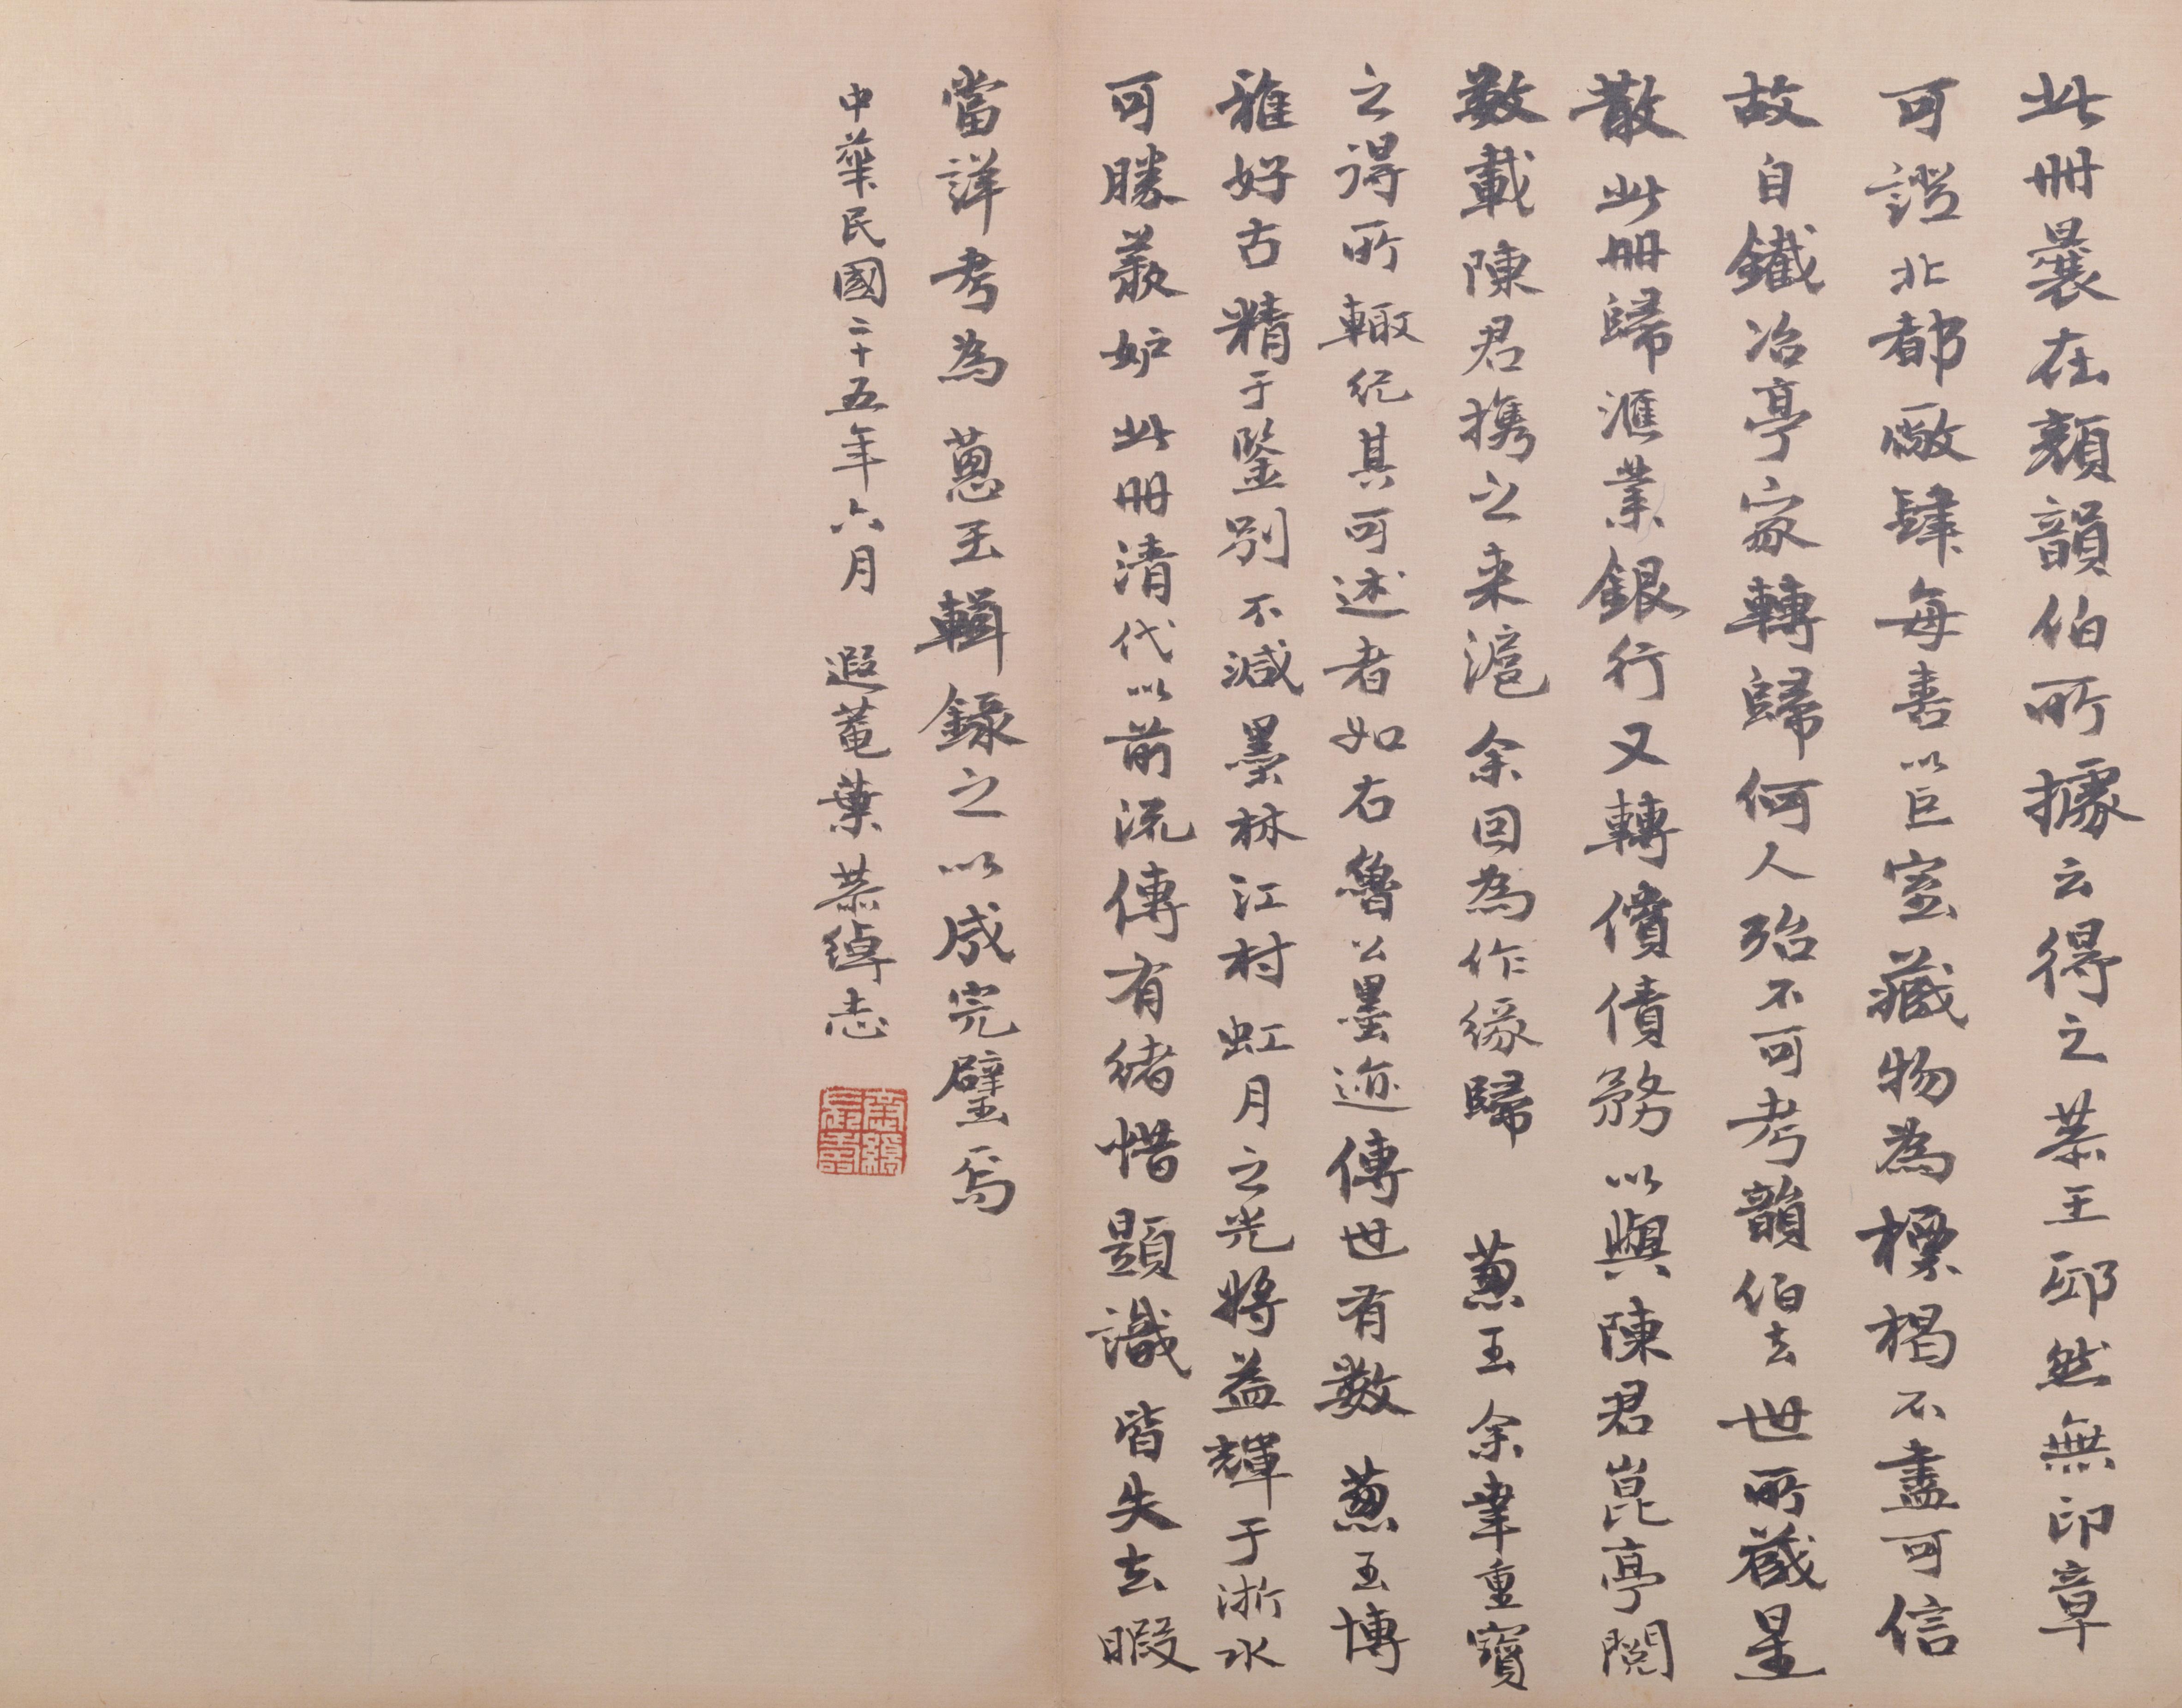 此冊曩在顏韻伯所據云得之恭王邸然無印章
可證北都廠肆每喜以巨室藏物為標楬不盡可信
故自鐵冶亭家轉歸何人殆不可考韻伯去世所藏星
散此冊歸滙業銀行又轉償債務以與陳君崑亭閱
數載陳君攜之来滬余因為作緣歸 蔥玉余幸重寶
之得所輙紀其可述者如右魯公墨迹傳世有數 蔥玉博
雅好古精于鑒別不減墨林江村虹月之光將益輝于浙水
可勝羨妒此冊清代以前流傳有緒惜題識皆失去暇
當詳考為 蔥玉輯錄之以成完璧焉
中華民國二十五年六月 遐菴葉恭綽志